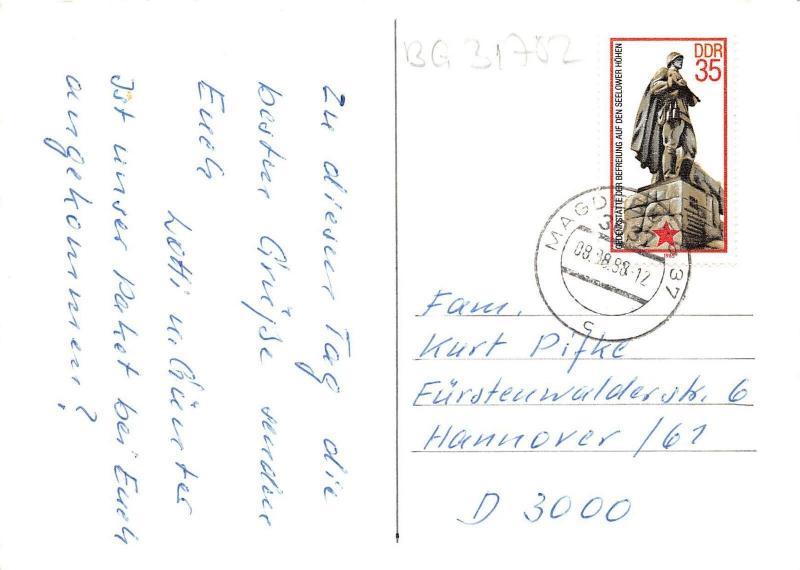 Zu dieser Tag die
besten Grüße senden
Euch
Lotti u. Günter
Ist unser Paket bei Euch
angekommen?
BG 31702
DDR
35
GEDENKSTÄTTE DER BEFREIUNG AUF DEN SEELOWER HÖHEN
1985
MAGDEBURG 37
08.08.88-12
c
Fam.
Kurt Pifke
Fürstenwalderstr. 6
Hannover /61
D 3000